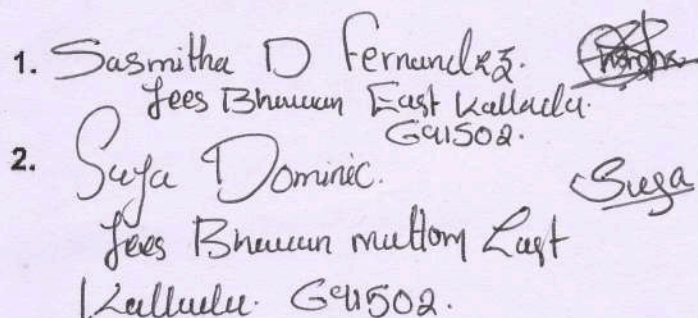 1. Sasmitha D Fernandez.
Jees Bhavan East Kallada.
691502.
2. Suja Dominic. Suja
Jees Bhavan muttom East
Kallada. 691502.